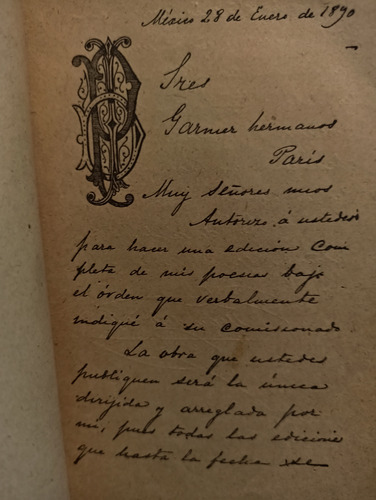 México 28 de Enero de 1890
Sres
Garnier hermanos
París
Muy Señores mios
Autorizo á ustedes
para hacer una edicion com
pleta de mis poesias bajo
el órden que verbalmente
indiqué á su comisionado
La obra que ustedes
publiquen será la única
dirijida y arreglada por
mi, pues todas las edicione
que hasta la fecha se